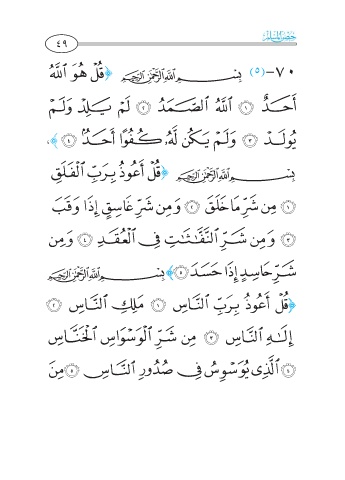 حصن المسلم
٤٩
٧٠-(٥) بِسْمِ اللَّهِ الرَّحْمَٰنِ الرَّحِيمِ ﴿قُلْ هُوَ اللَّهُ
أَحَدٌ ۝١ اللَّهُ الصَّمَدُ ۝٢ لَمْ يَلِدْ وَلَمْ
يُولَدْ ۝٣ وَلَمْ يَكُن لَّهُۥ كُفُوًا أَحَدٌۢ ۝٤﴾،
بِسْمِ اللَّهِ الرَّحْمَٰنِ الرَّحِيمِ ﴿قُلْ أَعُوذُ بِرَبِّ الْفَلَقِ
۝١ مِن شَرِّ مَا خَلَقَ ۝٢ وَمِن شَرِّ غَاسِقٍ إِذَا وَقَبَ
۝٣ وَمِن شَرِّ النَّفَّٰثَٰتِ فِي الْعُقَدِ ۝٤ وَمِن
شَرِّ حَاسِدٍ إِذَا حَسَدَ ۝٥﴾ بِسْمِ اللَّهِ الرَّحْمَٰنِ الرَّحِيمِ
﴿قُلْ أَعُوذُ بِرَبِّ النَّاسِ ۝١ مَلِكِ النَّاسِ ۝٢
إِلَٰهِ النَّاسِ ۝٣ مِن شَرِّ الْوَسْوَاسِ الْخَنَّاسِ
۝٤ الَّذِي يُوَسْوِسُ فِي صُدُورِ النَّاسِ ۝٥ مِنَ